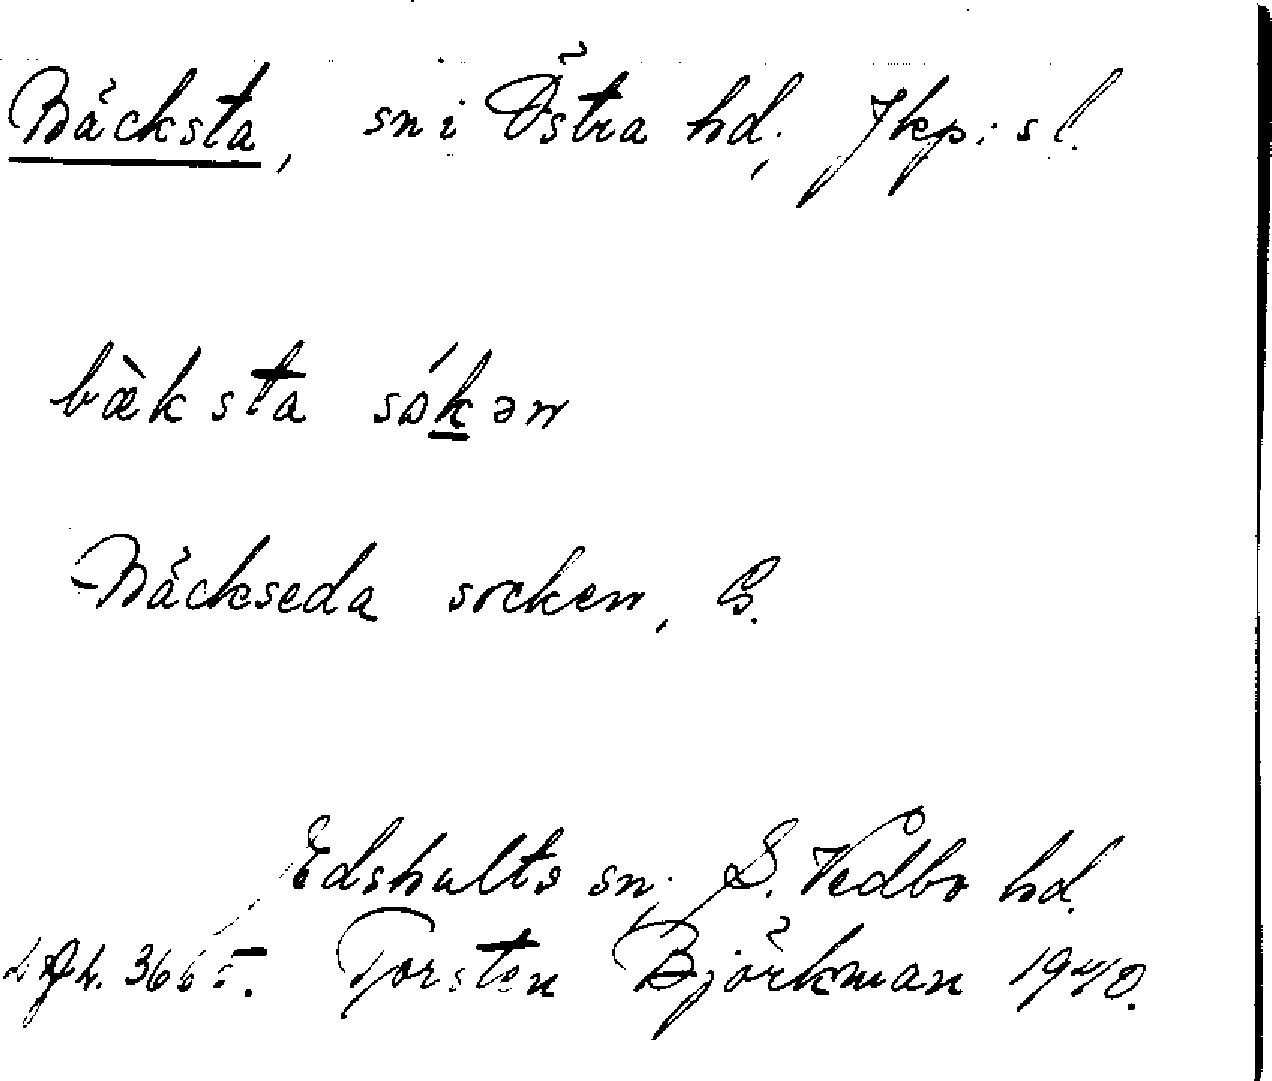 Bäcksta, sn i Östra hd; Jkp: s l.
bæ̀ksta sókən
Bäckseda socken, G.
Edshults sn; S. Vedbo hd.
Torsten Björkman 1940.